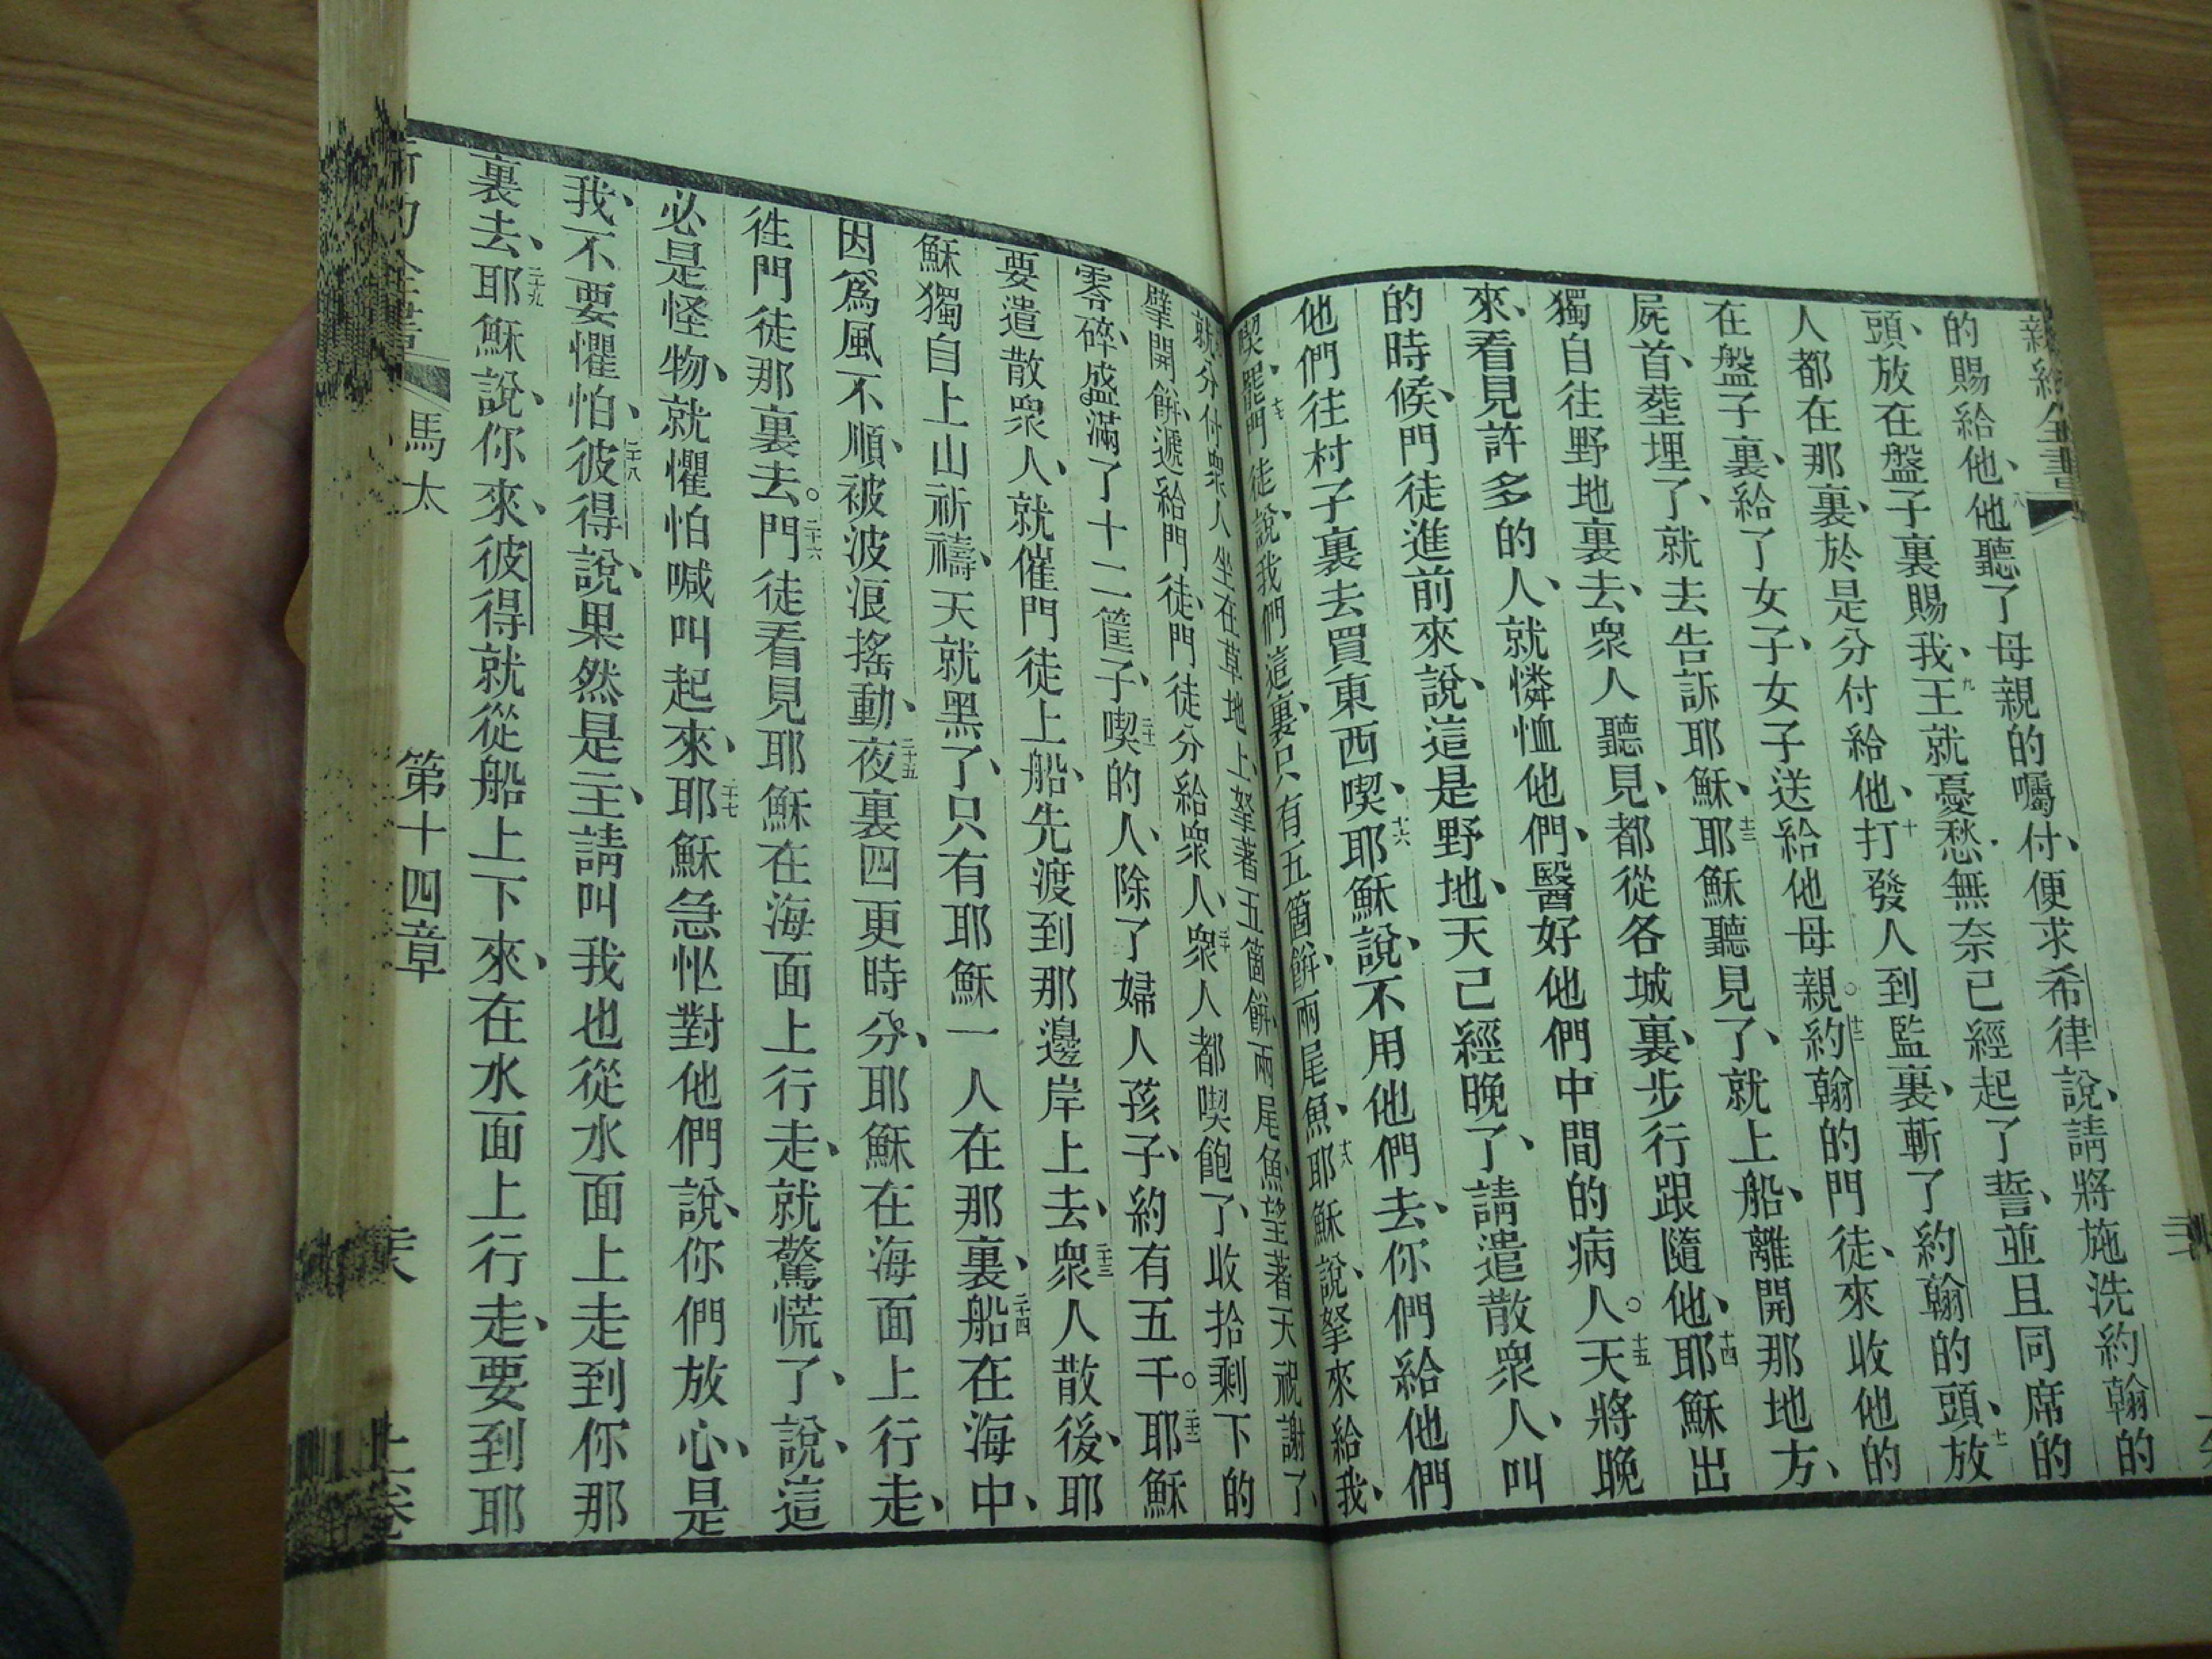 新約全書
的賜給他、八他聽了母親的囑付、便求希律說、請將施洗約翰的
頭、放在盤子裏賜我、九王就憂愁無奈已經起了誓、並且同席的
人都在那裏、於是分付給他、十打發人到監裏、斬了約翰的頭、十一放
在盤子裏、給了女子、女子送給他母親。十二約翰的門徒、來收他的
屍首、塟埋了、就去告訴耶穌、十三耶穌聽見了、就上船、離開那地方、
獨自往野地裏去、衆人聽見、都從各城裏、步行跟隨他、十四耶穌出
來、看見許多的人、就憐恤他們、醫好他們中間的病人。十五天將晚
的時候、門徒進前來說、這是野地、天已經晚了、請遣散衆人、叫
他們往村子裏去買東西喫、十六耶穌說、不用他們去、你們給他們
喫、罷十七門徒說、我們這裏、只有五箇餅、兩尾魚、十八耶穌說、拏來給我、
就分付衆人坐在草地上、拏著五箇餅、兩尾魚、望著天祝謝了、
擘開餅、遞給門徒、門徒分給衆人、二十衆人都喫飽了、收拾剩下的
零碎、盛滿了十二筐子、二十一喫的人、除了婦人孩子、約有五千。二十二耶穌
要遣散衆人、就催門徒上船、先渡到那邊岸上去、二十三衆人散後、耶
穌獨自上山祈禱、天就黑了、只有耶穌一人在那裏、二十四船在海中、
因爲風不順、被波浪搖動、二十五夜裏四更時分、耶穌在海面上行走、
徃門徒那裏去。二十六門徒看見耶穌在海面上行走、就驚慌了、說、這
必是怪物、就懼怕喊叫起來、二十七耶穌急忙對他們說、你們放心、是
我、不要懼怕、二十八彼得說、果然是主、請叫我也從水面上走到你那
裏去、二十九耶穌說、你來、彼得就從船上下來、在水面上行走、要到耶
馬太 第十四章 上卷